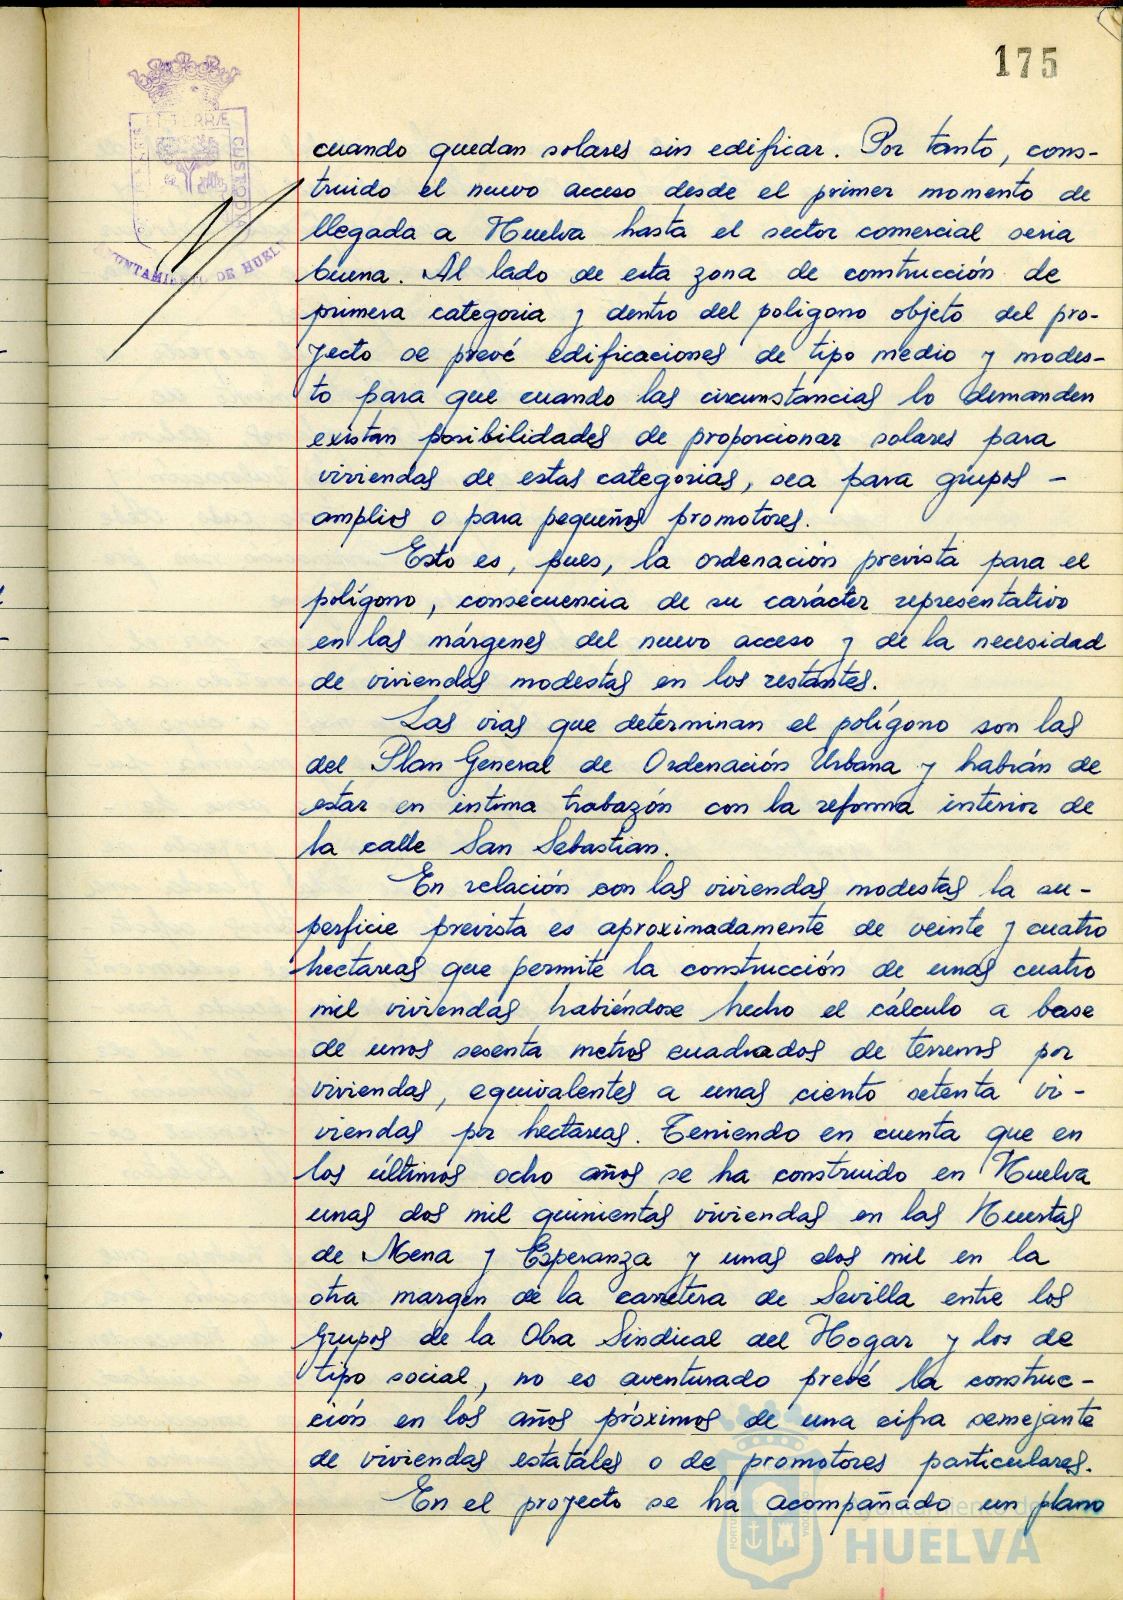 175
cuando quedan solares sin edificar. Por tanto, cons-
truido el nuevo acceso desde el primer momento de
llegada a Huelva hasta el sector comercial seria
buena. Al lado de esta zona de construcción de
primera categoria y dentro del poligono objeto del pro-
yecto se prevé edificaciones de tipo medio y modes-
to para que cuando las circunstancias lo demanden
existan posibilidades de proporcionar solares para
viviendas de estas categorias, sea para grupos -
amplios o para pequeños promotores.
Esto es, pues, la ordenación prevista para el
polígono, consecuencia de su carácter representativo
en las márgenes del nuevo acceso y de la necesidad
de viviendas modestas en los restantes.
Las vias que determinan el polígono son las
del Plan General de Ordenación Urbana y habrán de
estar en intima trabazón con la reforma interior de
la calle San Sebastian.
En relación con las viviendas modestas la su-
perficie prevista es aproximadamente de veinte y cuatro
hectareas que permite la construcción de unas cuatro
mil viviendas habiéndose hecho el cálculo a base
de unos sesenta metros cuadrados de terrenos por
viviendas, equivalentes a unas ciento setenta vi-
viendas por hectareas. Teniendo en cuenta que en
los últimos ocho años se ha construido en Huelva
unas dos mil quinientas viviendas en las Huertas
de Mena y Esperanza y unas dos mil en la
otra margen de la carretera de Sevilla entre los
grupos de la Obra Sindical del Hogar y los de
tipo social, no es aventurado prevé la construc-
ción en los años próximos de una cifra semejante
de viviendas estatales o de promotores particulares.
En el proyecto se ha acompañado un plano
Ayuntamiento de
HUELVA